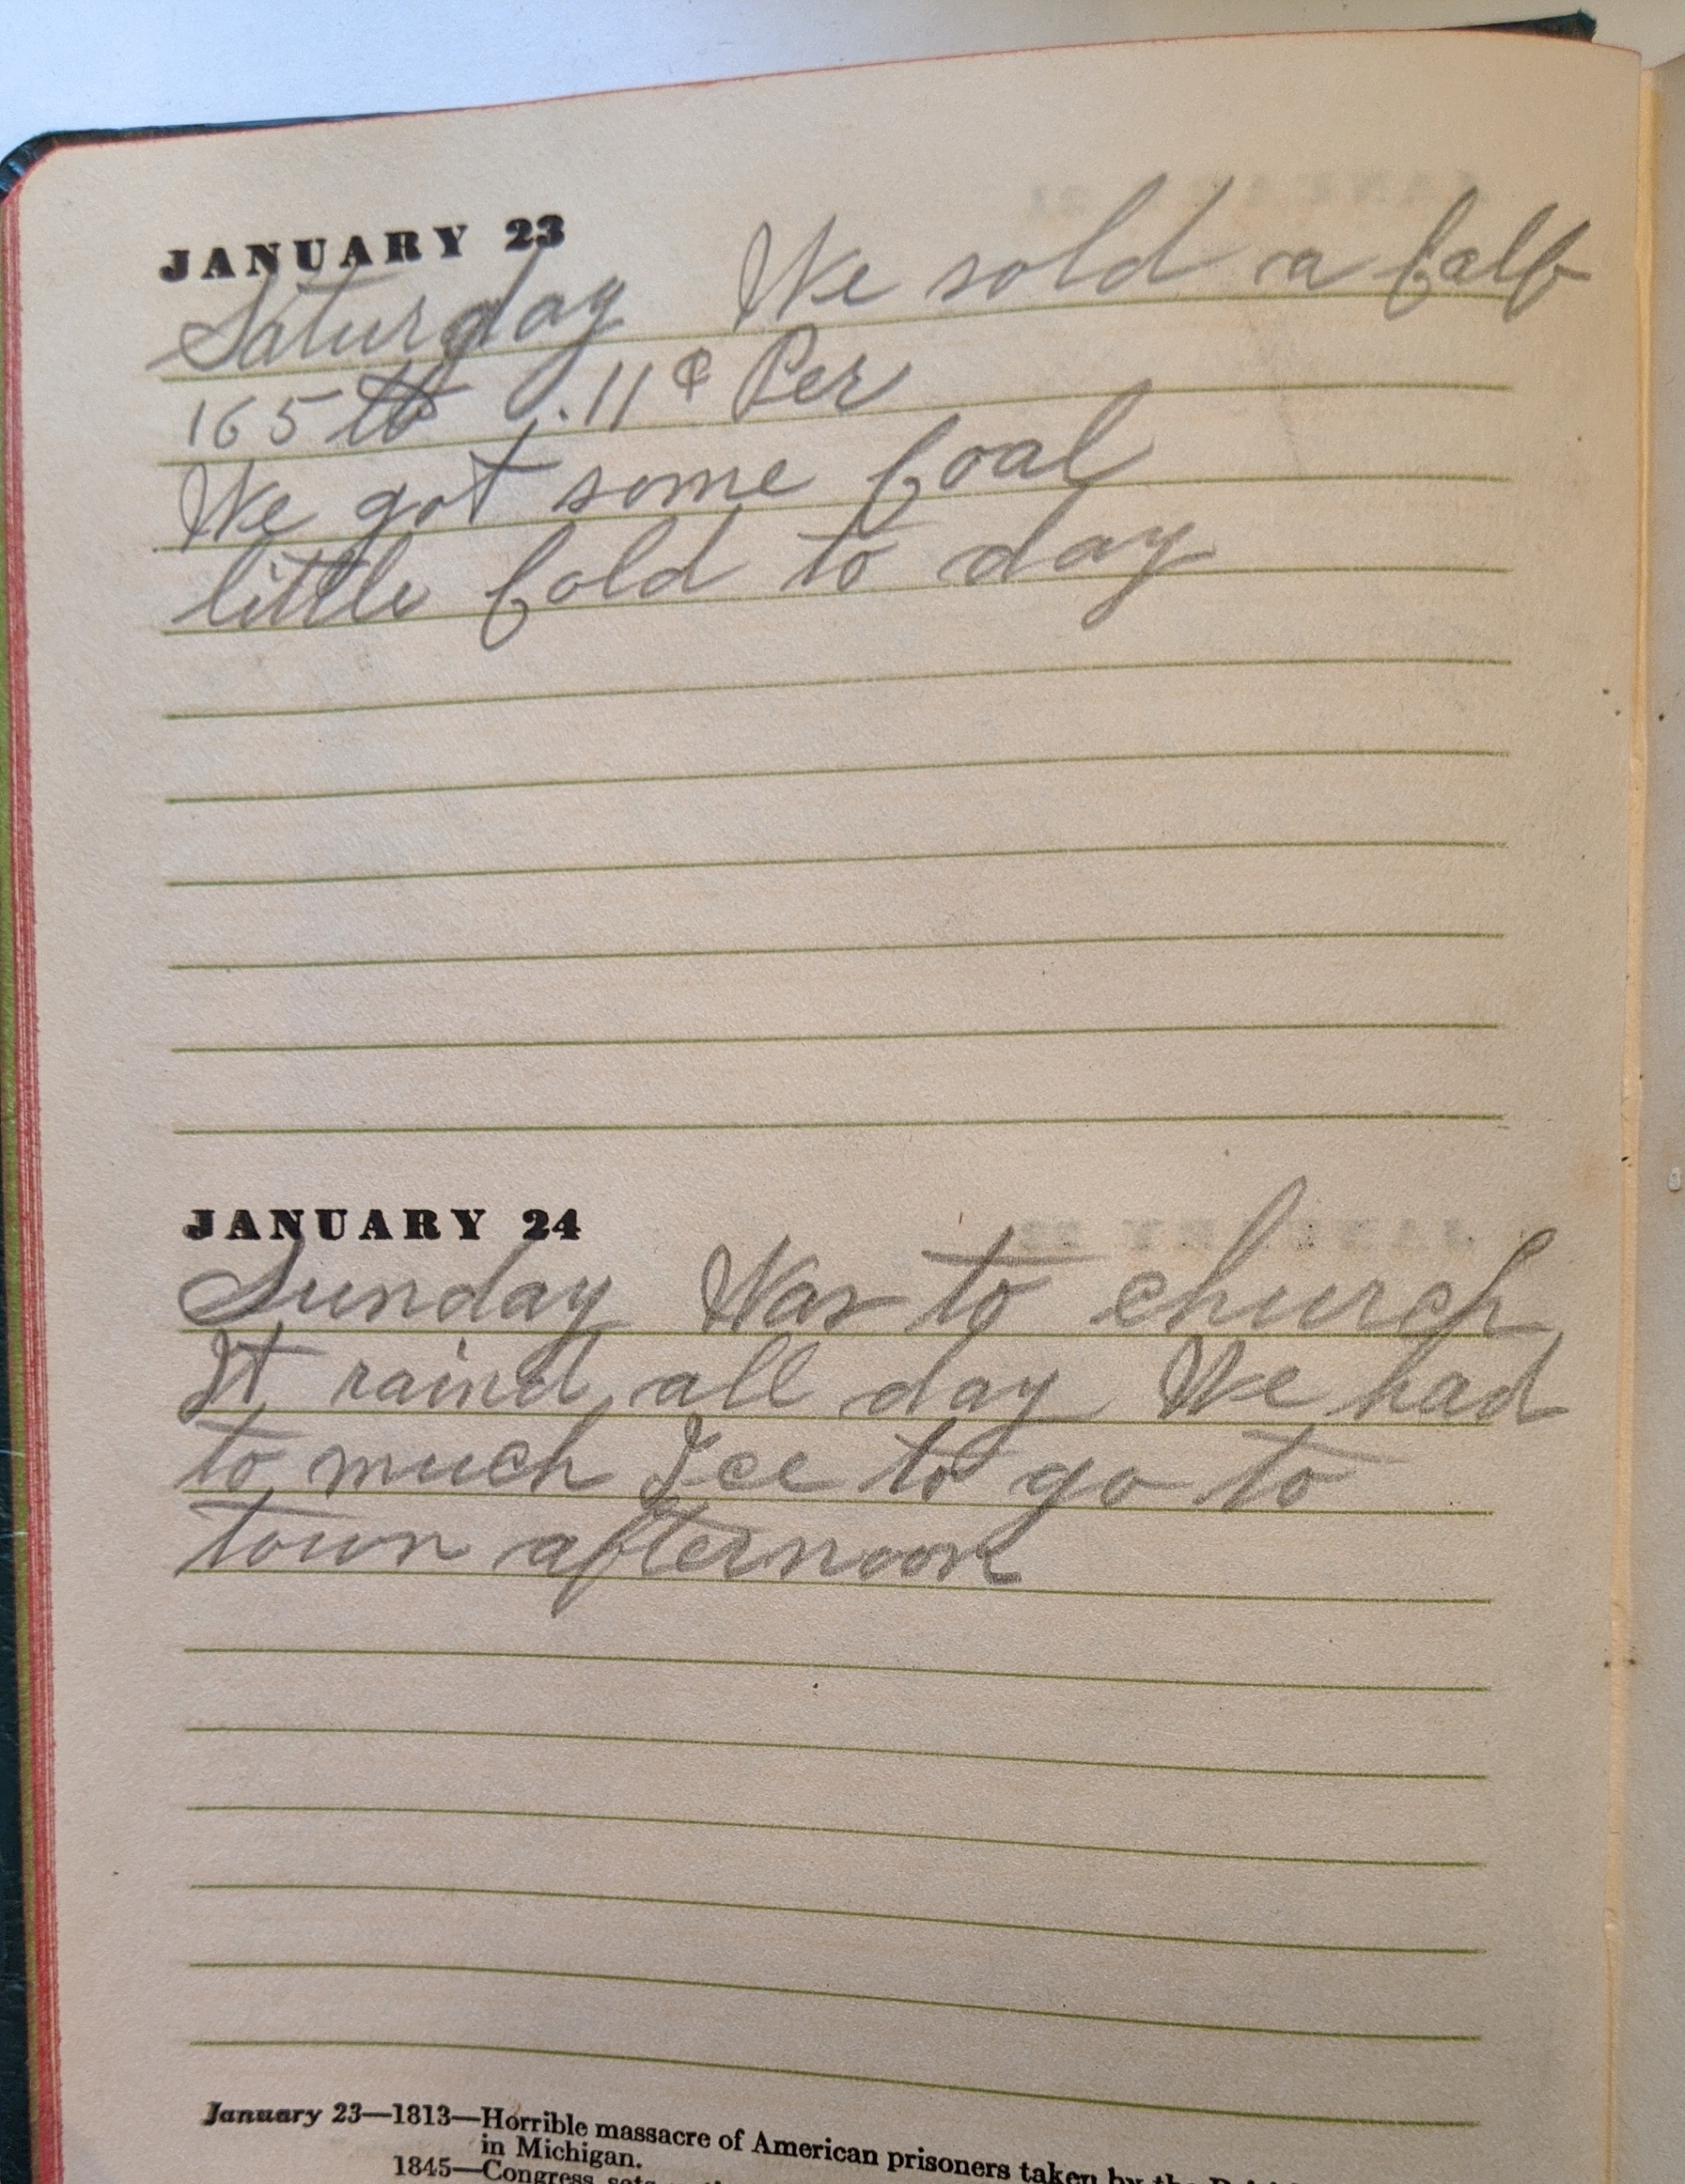 JANUARY 23
Saturday We sold a Calf
165 lb .11¢ Per
We got some Coal
little Cold to day
JANUARY 24
Sunday Was to church
It raind all day We had
to much Ice to go to
town afternoon
January 23—1813—Horrible massacre of American prisoners taken by the
in Michigan.
1845—Congress sets